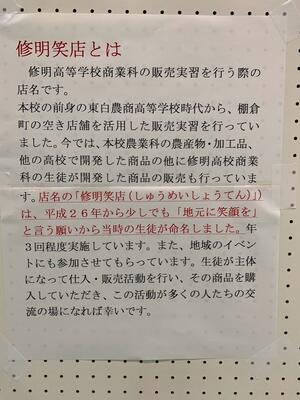 修明笑店とは
修明高等学校商業科の販売実習を行う際の
店名です。
本校の前身の東白農商高等学校時代から、棚倉
町の空き店舗を活用した販売実習を行ってい
ました。今では、本校農業科の農産物・加工品、
他の高校で開発した商品の他に修明高校商業
科の生徒が開発した商品の販売も行っていま
す。店名の「修明笑店(しゅうめいしょうてん)」)
は、平成２６年から少しでも「地元に笑顔を」
と言う願いから当時の生徒が命名しました。年
３回程度実施しています。また、地域のイベント
にも参加させてもらっています。生徒が主体
になって仕入・販売活動を行い、その商品を購
入していただき、この活動が多くの人たちの交
流の場になれば幸いです。